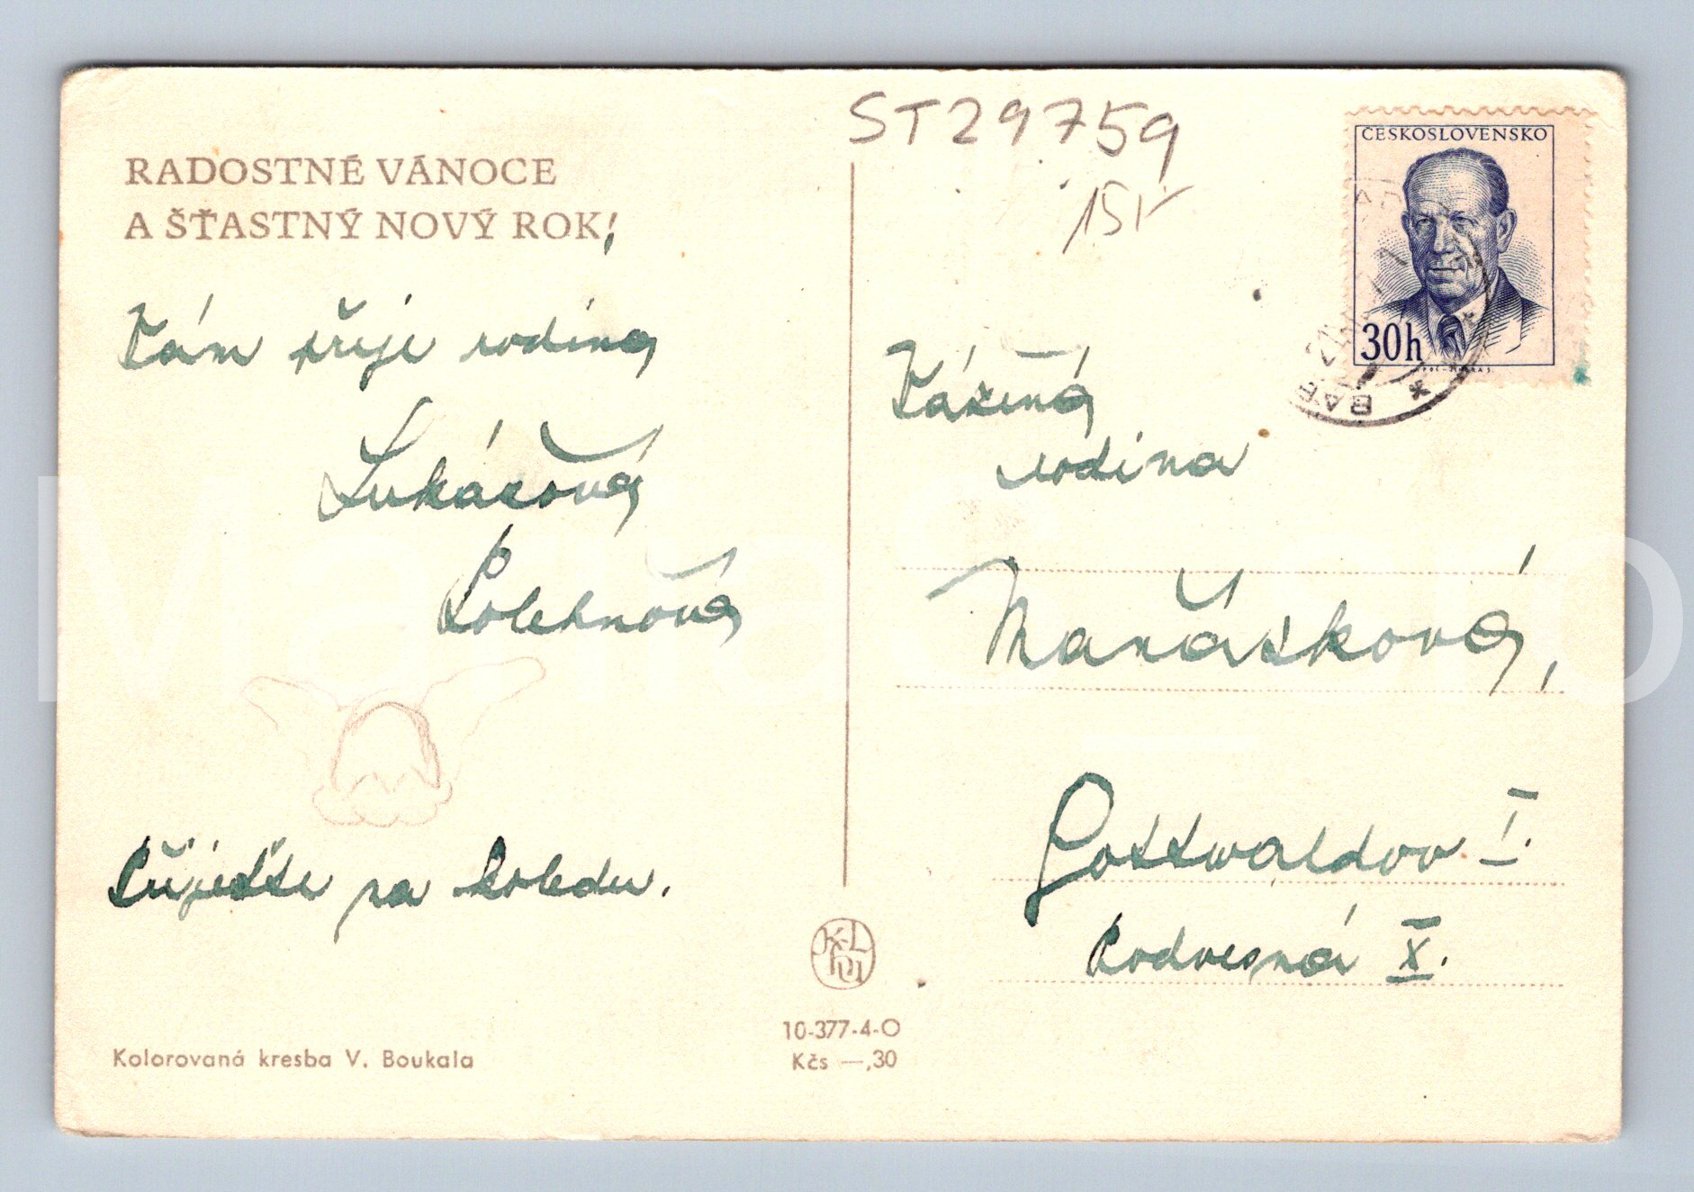 ST29759
15,-
ČESKOSLOVENSKO
30h
RADOSTNÉ VÁNOCE
A ŠŤASTNÝ NOVÝ ROK!
Vám přeje rodina
Lukášová
Polehňová
Přijeďte na koledu.
Vážená
rodina
Maňásková,
Gottwaldov I.
Podvesná X.
10-377-4-O
Kčs —,30
Kolorovaná kresba V. Boukala